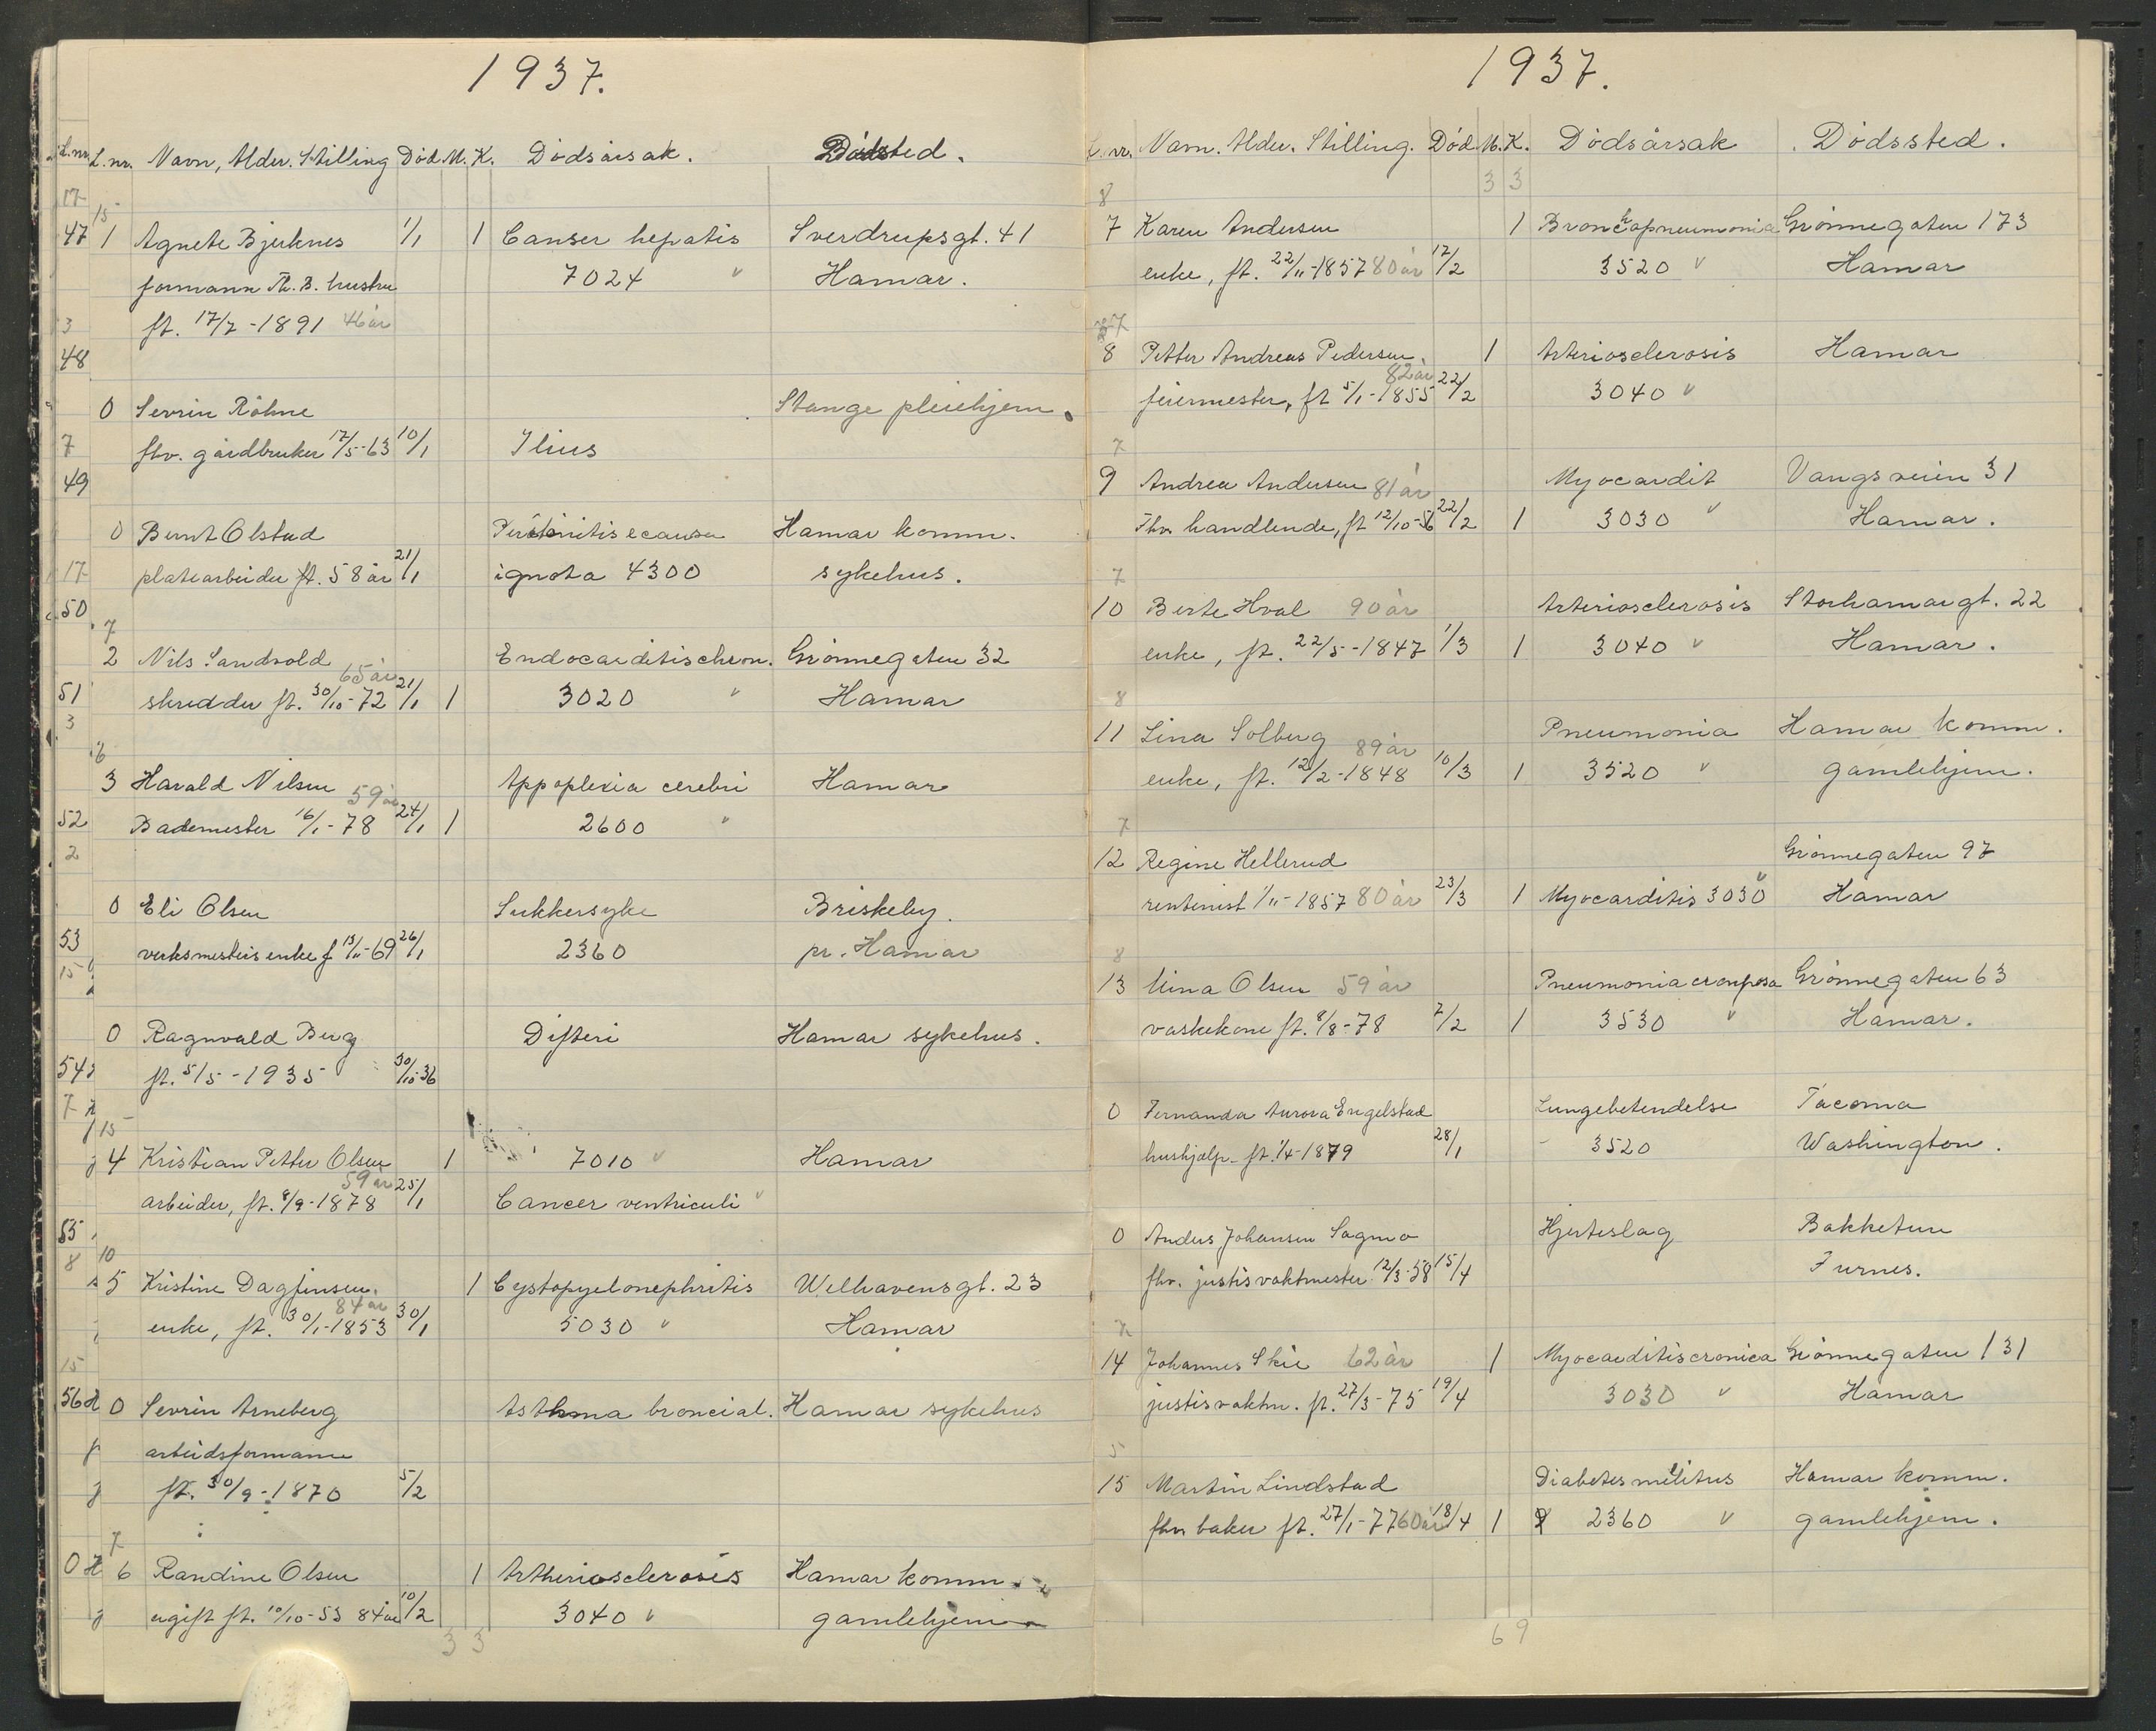 1937.
L.nr. L.nr. Navn, Alder. Stilling Død M. K. Dødsårsak. Dødsted.
17
15
47 1 Agnete Bjerknes 1/1 1 Canser hepatis Sverdrupsgt. 41
formann Th. B. hustru 7024 " Hamar.
3 ft. 17/7 - 1891 46 år
48
0 Sevrin Röhne Stange pleiehjem.
7 fhv. gårdbruker 17/5-63 10/1 Ilius
49
0 Bernt Olstad Peritonitis e causa Hamar komm.
17 platearbeider ft. 58 år 21/1 ignota 4300 sykehus.
50
7
2 Nils Sandvold Endocarditis chron. Grønnegaten 32
65 år
51 skredder ft. 30/10-72 21/1 1 3020 " Hamar
3
6
3 Harald Nilsen Appoplexia cerebri Hamar
59 år
52 Bademester 16/1-78 24/1 1 2600 "
2
0 Eli Olsen Sukkersyke Briskeby.
53 verksmesters enke f 13/11-69 26/1 2360 pr. Hamar
15
0 Ragnvald Berg Difteri Hamar sykehus.
54 ft. 5/5 - 1935 30/10-36
7
15
4 Kristian Petter Olsen 1 7010 " Hamar
59 år
arbeider, ft. 8/9-1878 25/1 Cancer ventriculi "
55
8 10
5 Kristine Dagfinsen. 1 Cystopyelonephritis Welhavensgt. 23
84 år
enke, ft. 30/1-1853 30/1 5030 " Hamar
15
56 0 Sevrin Arneberg Asthma broncial. Hamar sykehus
arbeidsformann
ft. 30/9-1870 5/2
7
0 6 Randine Olsen 1 Artheriosclerosis Hamar komm.
ugift ft. 10/10-53 84 år 10/2 3040 " gamlehjem
3 3
1937.
L.nr. Navn. Alder. Stilling. Død M. K. Dødsårsak Dødssted.
3 3
8
7 Karen Andersen 1 Bronchopneumonia Grønnegaten 173
enke, ft. 22/11-1857 80 år 17/2 3520 " Hamar
7
8 Petter Andreas Pedersen. 1 Arteriosclerosis Hamar
82 år
feiermester, ft 5/1-1855 22/2 3040 "
7
9 Andrea Andersen 81 år Myocardit Vangsveien 31
Fhv handlende, ft 12/10-56 22/2 1 3030 " Hamar.
7
10 Berte Hval 90 år Arteriosclerosis Storhamargt. 22
enke, ft. 22/5-1847 1/3 1 3040 " Hamar.
8
11 Lina Solberg Pneumonia Hamar komm.
89 år
enke, ft. 12/2-1848 10/3 1 3520 " gamlehjem.
7
12 Regine Hellerud Grønnegaten 97
rentenist 1/11-1857 80 år 23/3 1 Myocarditis 3030 " Hamar
8
13 Mina Olsen 59 år Pneumonia crouposa Grønnegaten 63
vaskekone ft. 8/8-78 7/2 1 3530 " Hamar.
0 Fernanda Aurora Engelstad Lungebetendelse Tacoma
hushjelp ft. 1/4-1879 28/1 3520 Washington.
0 Anders Johansen Sagmo Hjerteslag Bakketun
fhv. justisvaktmester 12/3-58 15/4 Furnes.
7
14 Johannes Skie 62 år 1 Myocarditis cronica Grønnegaten 131
justisvaktm. ft. 27/3-75 19/4 3030 " Hamar
5
15 Martin Lindstad Diabetes melitus Hamar komm.
fhv baker ft. 27/1-77 60 år 18/4 1 2360 " gamlehjem.
6 9